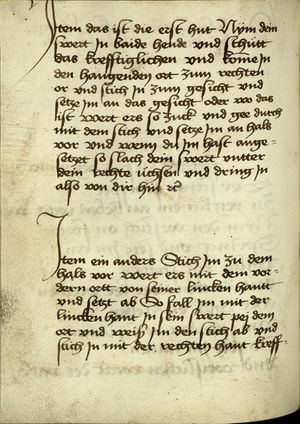 Item das ist die erst hut Nym dein
swert In baide hende vnd schütt
das krefftiglichen vnd kome in
den hangenden ort zum rechten
or vnd stich in zum gesicht vnd
setze im an das gesicht oder wo das
ist wert ers so zuck vnd gee durch
mit dem stich vnd setze im an hals
vor vnd wenn du im hast ange-
setzet so slach dein swert vnter
dein rechte üchsen vnd dring in
also von dir hin rc
Item ein anders Stich im zu dem
hals vor wert ers mit dem vor-
dern ortt von seiner lincken hantt
vnd setzt ab So fall im mit der
lincken hant in sein swert pei dem
ort vnd weiß im den stich ab vnd
stich in mit der rechten hant kreff-